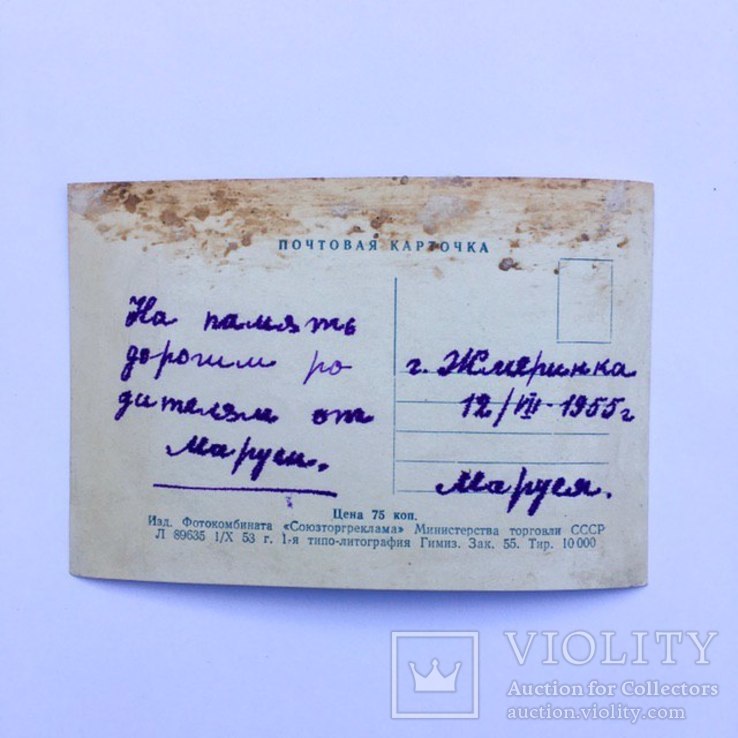 ПОЧТОВАЯ КАРТОЧКА
На память
дорогим ро
дителям от
Маруси.
г. Жмеринка
12/VII-1955г
Маруся.
Цена 75 коп.
Изд. Фотокомбината «Союзторгреклама» Министерства торговли СССР
Л 89635 1/X 53 г. 1-я типо-литография Гимиз. Зак. 55. Тир. 10 000
VIOLITY
Auction for Collectors
auction.violity.com